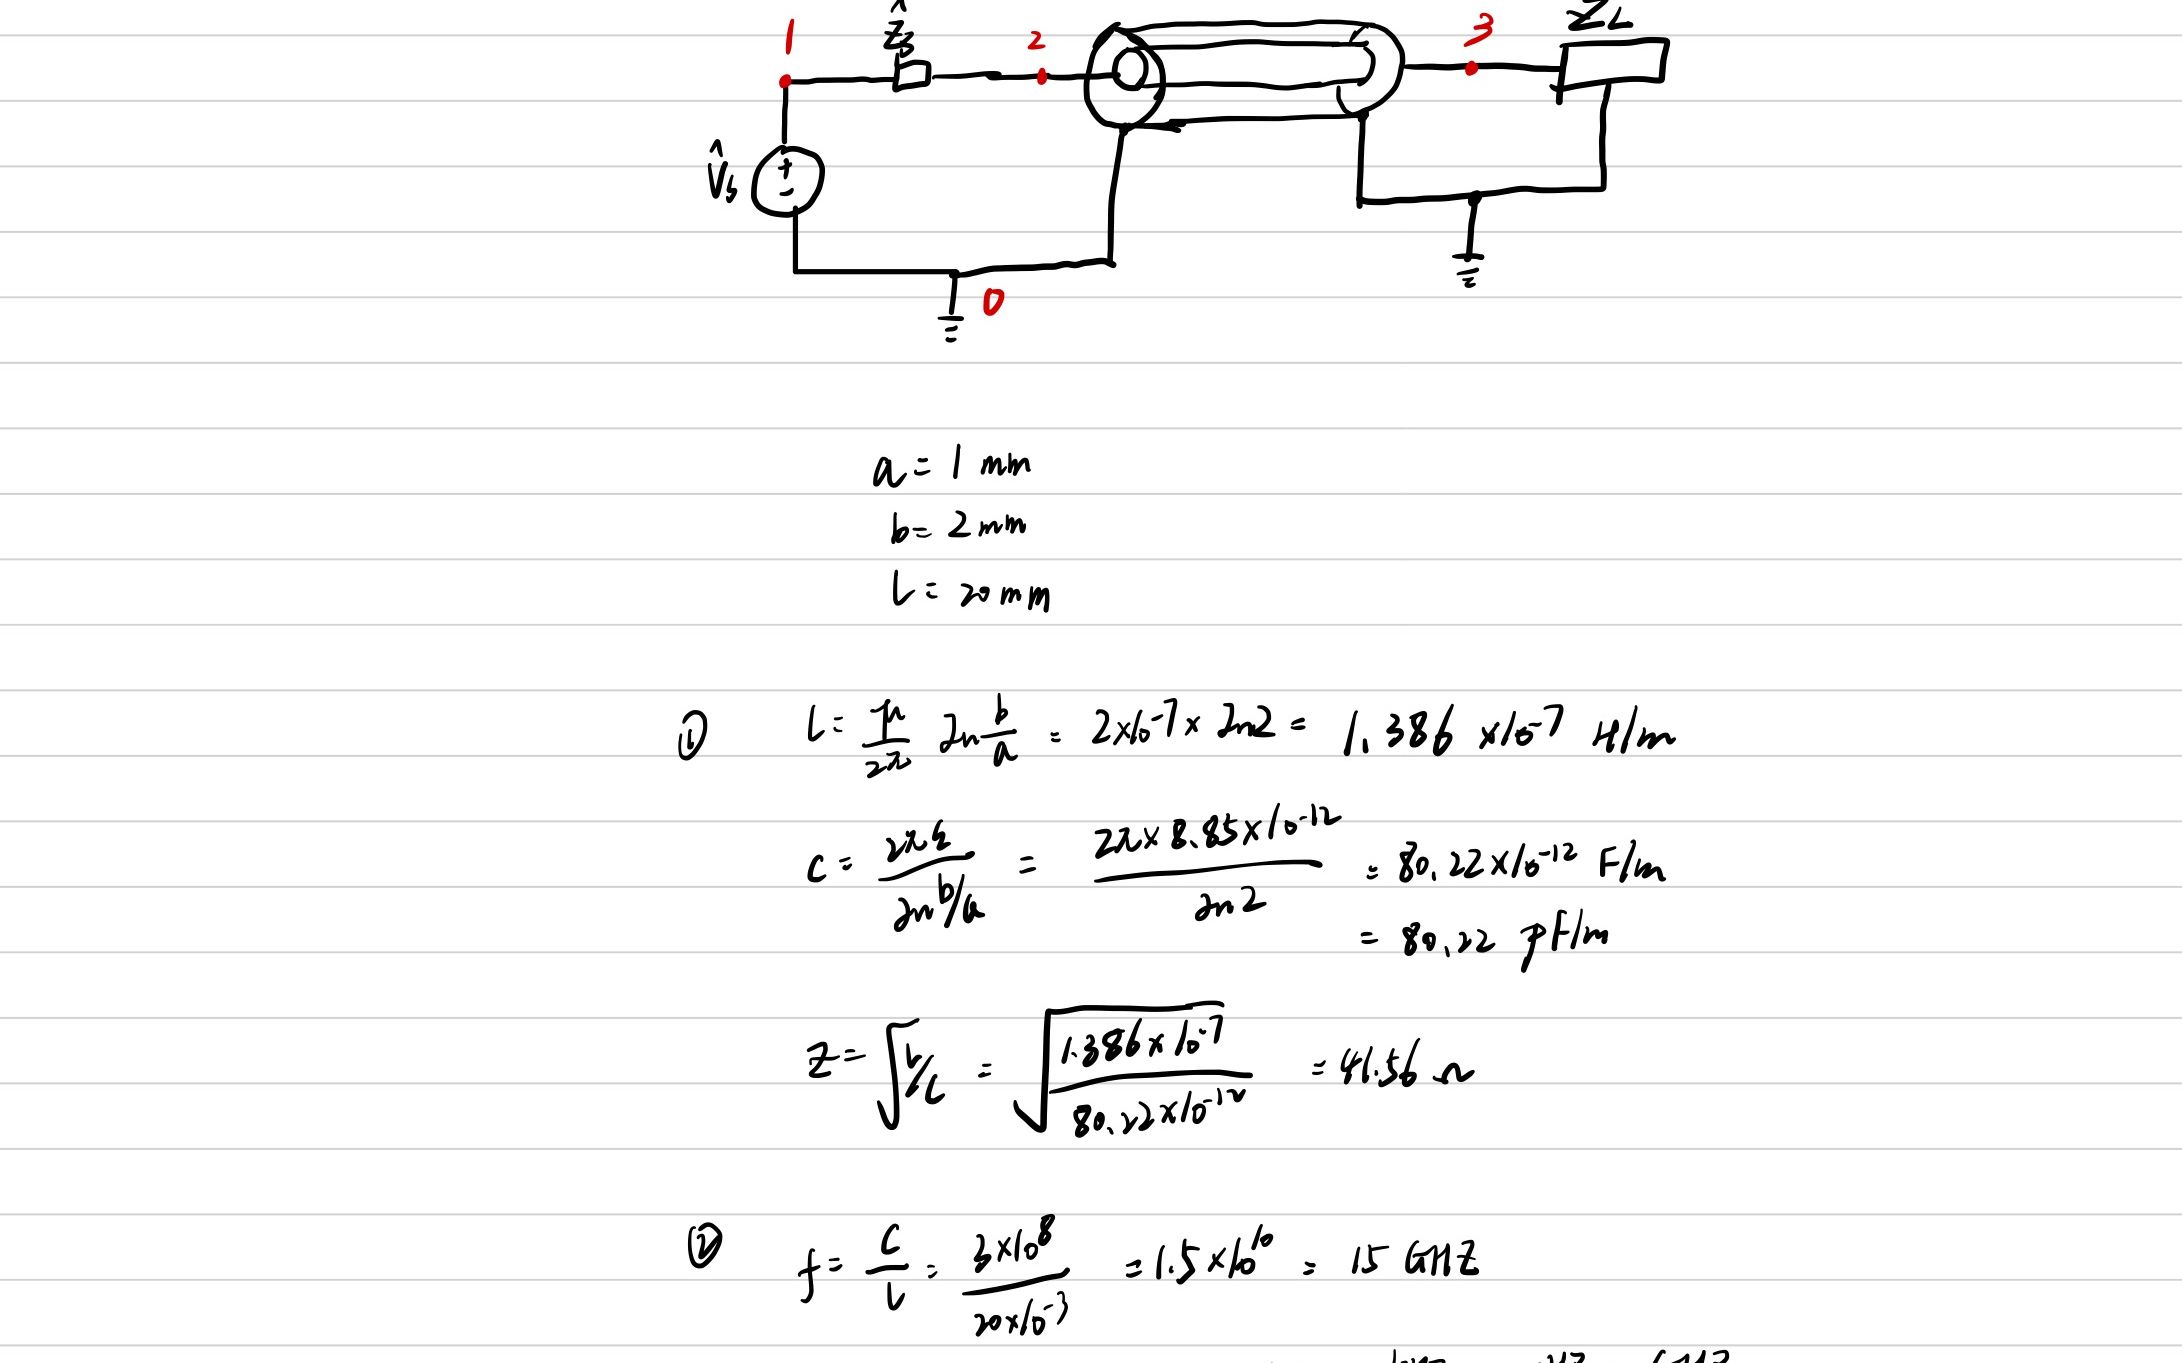 1 Ẑs 2 3 ZL
V̂s + -
0
a = 1 mm
b = 2 mm
l = 20 mm
① l = μ/2π ln b/a = 2×10⁻⁷ × ln2 = 1.386 ×10⁻⁷ H/m
c = 2πε/ln b/a = 2π × 8.85×10⁻¹²/ln 2 = 80.22×10⁻¹² F/m
= 80.22 pF/m
Z = √L/C = √1.386×10⁻⁷/80.22×10⁻¹² = 41.56 Ω
② f = C/L = 3×10⁸/20×10⁻³ = 1.5×10¹⁰ = 15 GHZ